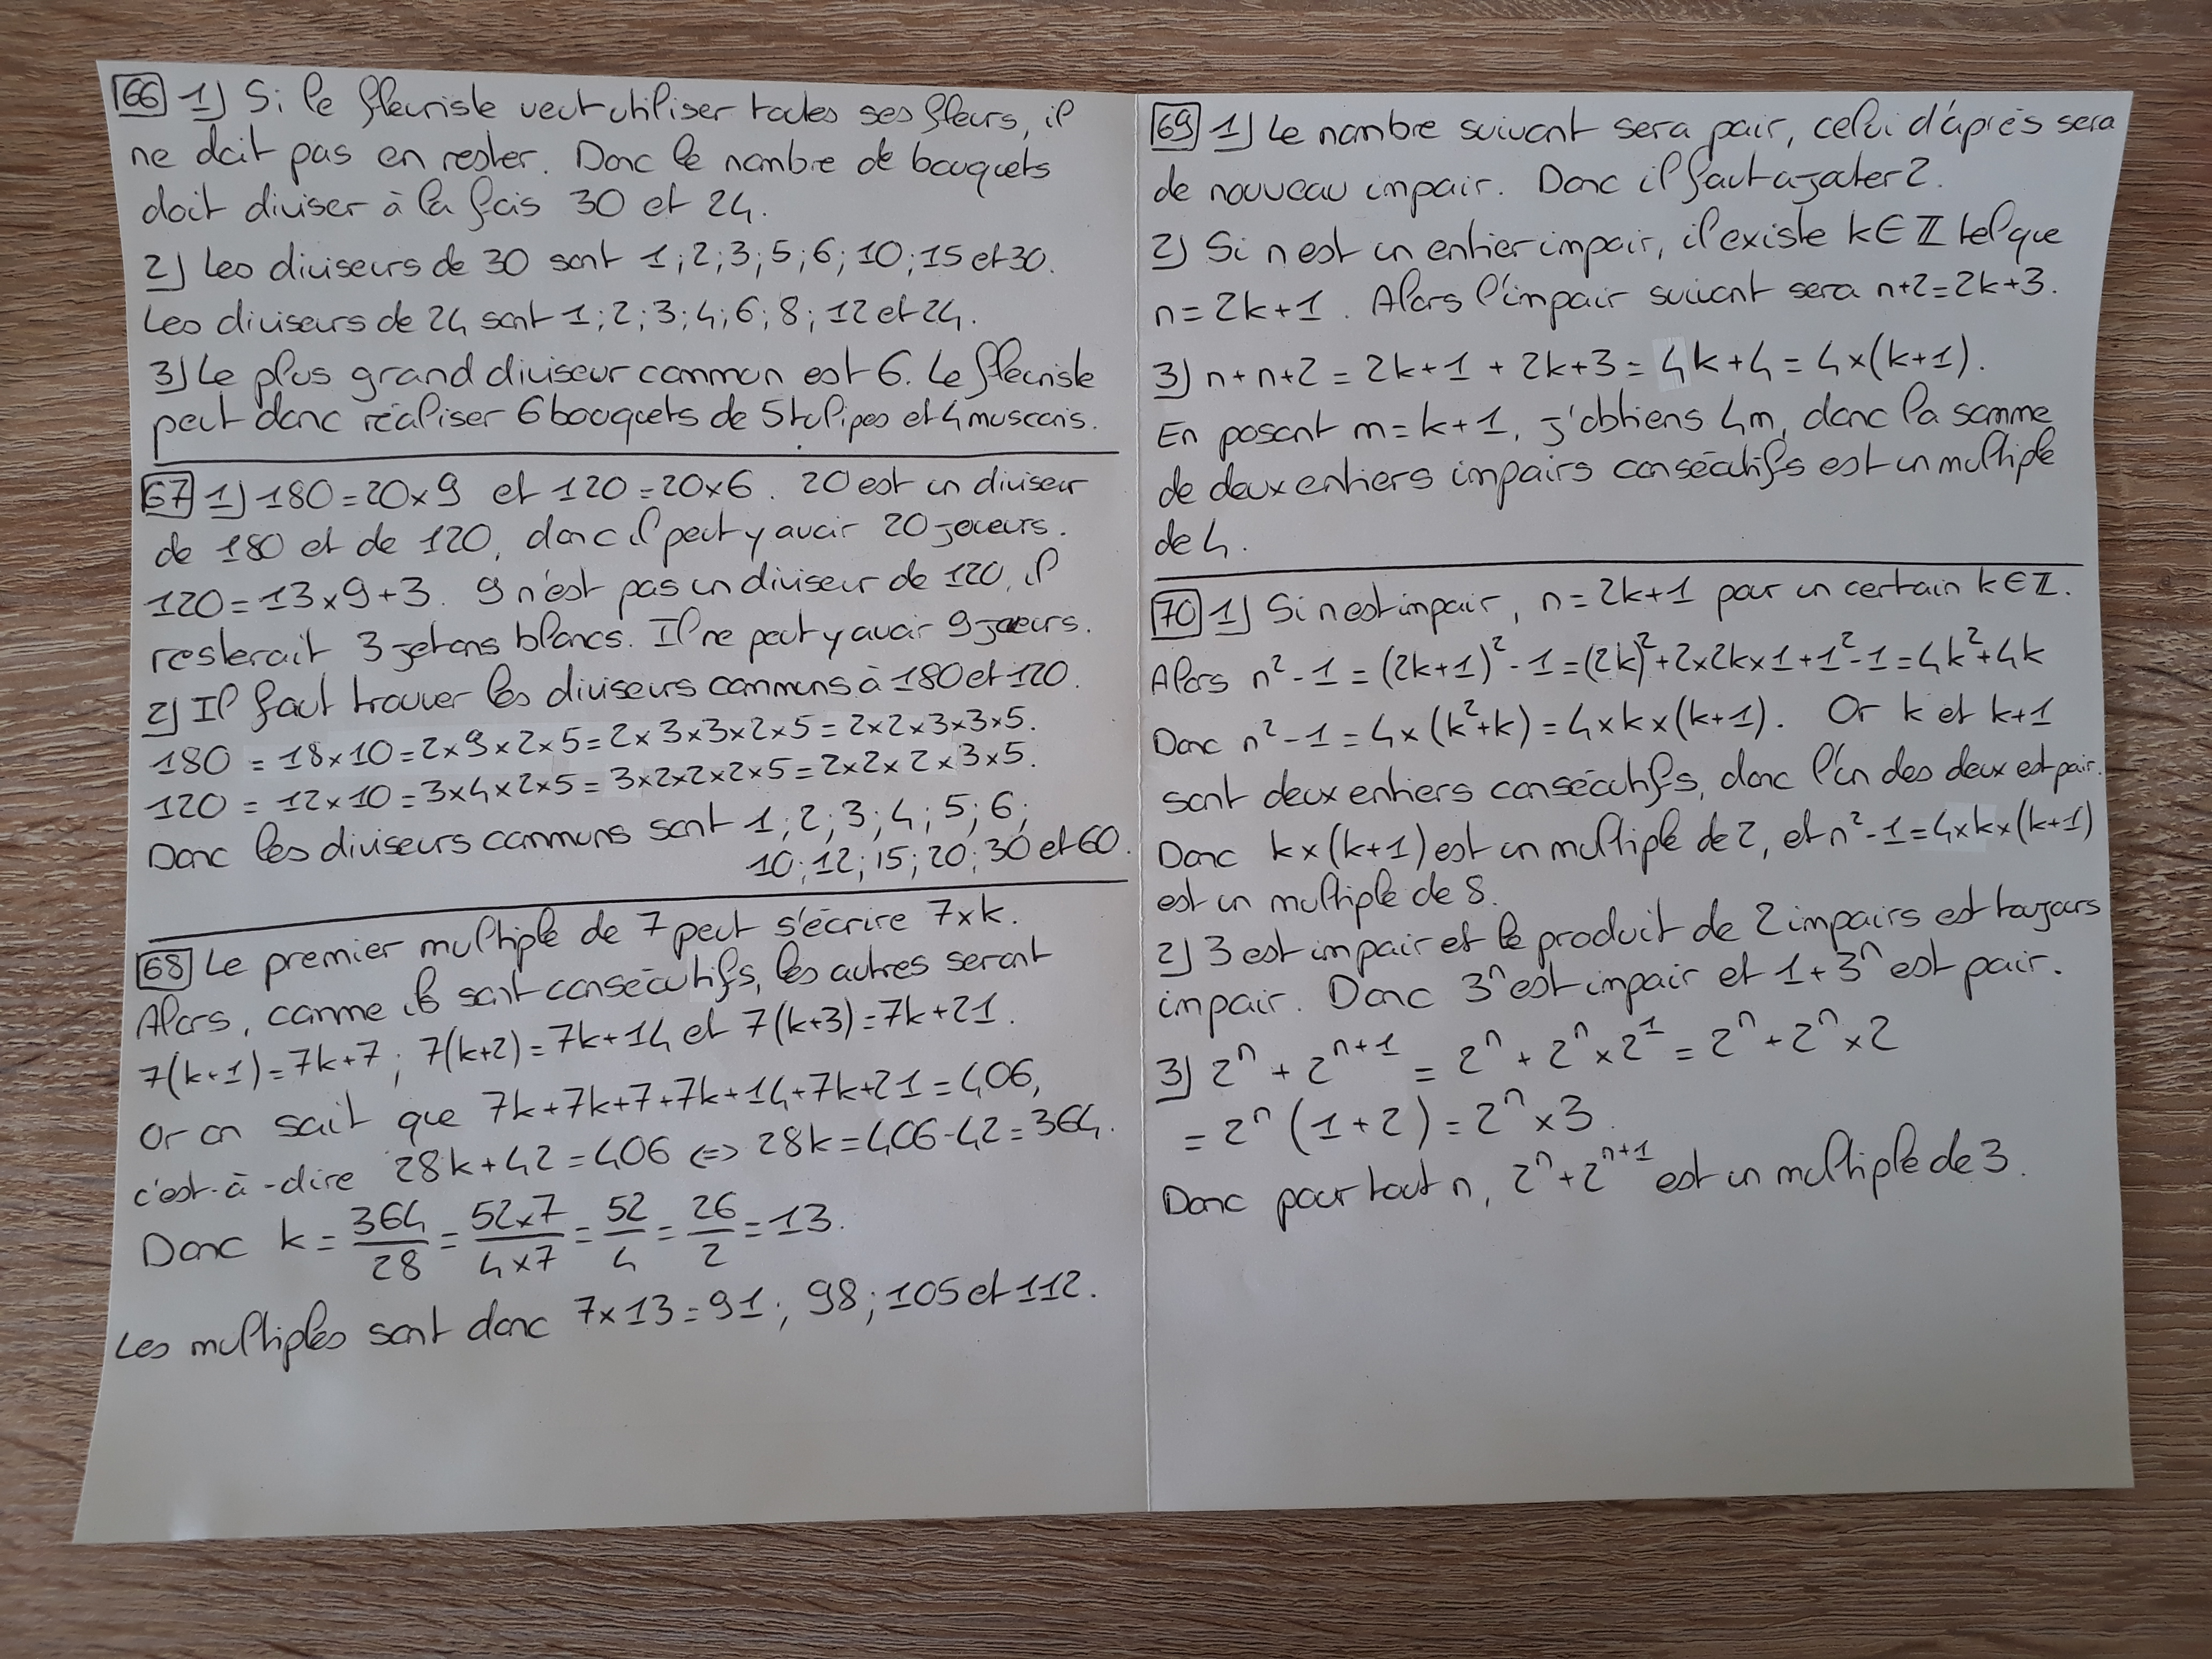 66 1) Si le fleuriste veut utiliser toutes ses fleurs, il
ne doit pas en rester. Donc le nombre de bouquets
doit diviser à la fois 30 et 24.
2) Les diviseurs de 30 sont 1; 2; 3; 5; 6; 10; 15 et 30.
Les diviseurs de 24 sont 1; 2; 3; 4; 6; 8; 12 et 24.
3) Le plus grand diviseur commun est 6. Le fleuriste
peut donc réaliser 6 bouquets de 5 tulipes et 4 muscaris.
67 1) 180 = 20 × 9 et 120 = 20 × 6. 20 est un diviseur
de 180 et de 120, donc il peut y avoir 20 joueurs.
120 = 13 × 9 + 3. 9 n'est pas un diviseur de 120, il
resterait 3 jetons blancs. Il ne peut y avoir 9 joueurs.
2) Il faut trouver les diviseurs communs à 180 et 120.
180 = 18 × 10 = 2 × 9 × 2 × 5 = 2 × 3 × 3 × 2 × 5 = 2 × 2 × 3 × 3 × 5.
120 = 12 × 10 = 3 × 4 × 2 × 5 = 3 × 2 × 2 × 2 × 5 = 2 × 2 × 2 × 3 × 5.
Donc les diviseurs communs sont 1; 2; 3; 4; 5; 6;
10; 12; 15; 20; 30 et 60.
68 Le premier multiple de 7 peut s'écrire 7 × k.
Alors, comme ils sont consécutifs, les autres seront
7(k+1) = 7k+7; 7(k+2) = 7k+14 et 7(k+3) = 7k+21.
Or on sait que 7k+7k+7+7k+14+7k+21 = 406,
c'est-à-dire 28k+42 = 406 ⟺ 28k = 406-42 = 364.
Donc k = 364/28 = 52×7/4×7 = 52/4 = 26/2 = 13.
Les multiples sont donc 7×13 = 91; 98; 105 et 112.
69 1) Le nombre suivant sera pair, celui d'après sera
de nouveau impair. Donc il faut ajouter 2.
2) Si n est un entier impair, il existe k ∈ ℤ tel que
n = 2k+1. Alors l'impair suivant sera n+2 = 2k+3.
3) n+n+2 = 2k+1 + 2k+3 = 4k+4 = 4×(k+1).
En posant m = k+1, j'obtiens 4m, donc la somme
de deux entiers impairs consécutifs est un multiple
de 4.
70 1) Si n est impair, n = 2k+1 pour un certain k ∈ ℤ.
Alors n²-1 = (2k+1)²-1 = (2k)²+2×2k×1+1²-1 = 4k²+4k
Donc n²-1 = 4×(k²+k) = 4×k×(k+1). Or k et k+1
sont deux entiers consécutifs, donc l'un des deux est pair.
Donc k×(k+1) est un multiple de 2, et n²-1 = 4×k×(k+1)
est un multiple de 8.
2) 3 est impair et le produit de 2 impairs est toujours
impair. Donc 3ⁿ est impair et 1+3ⁿ est pair.
3) 2ⁿ + 2ⁿ⁺¹ = 2ⁿ + 2ⁿ × 2¹ = 2ⁿ + 2ⁿ × 2
= 2ⁿ (1+2) = 2ⁿ × 3
Donc pour tout n, 2ⁿ+2ⁿ⁺¹ est un multiple de 3.